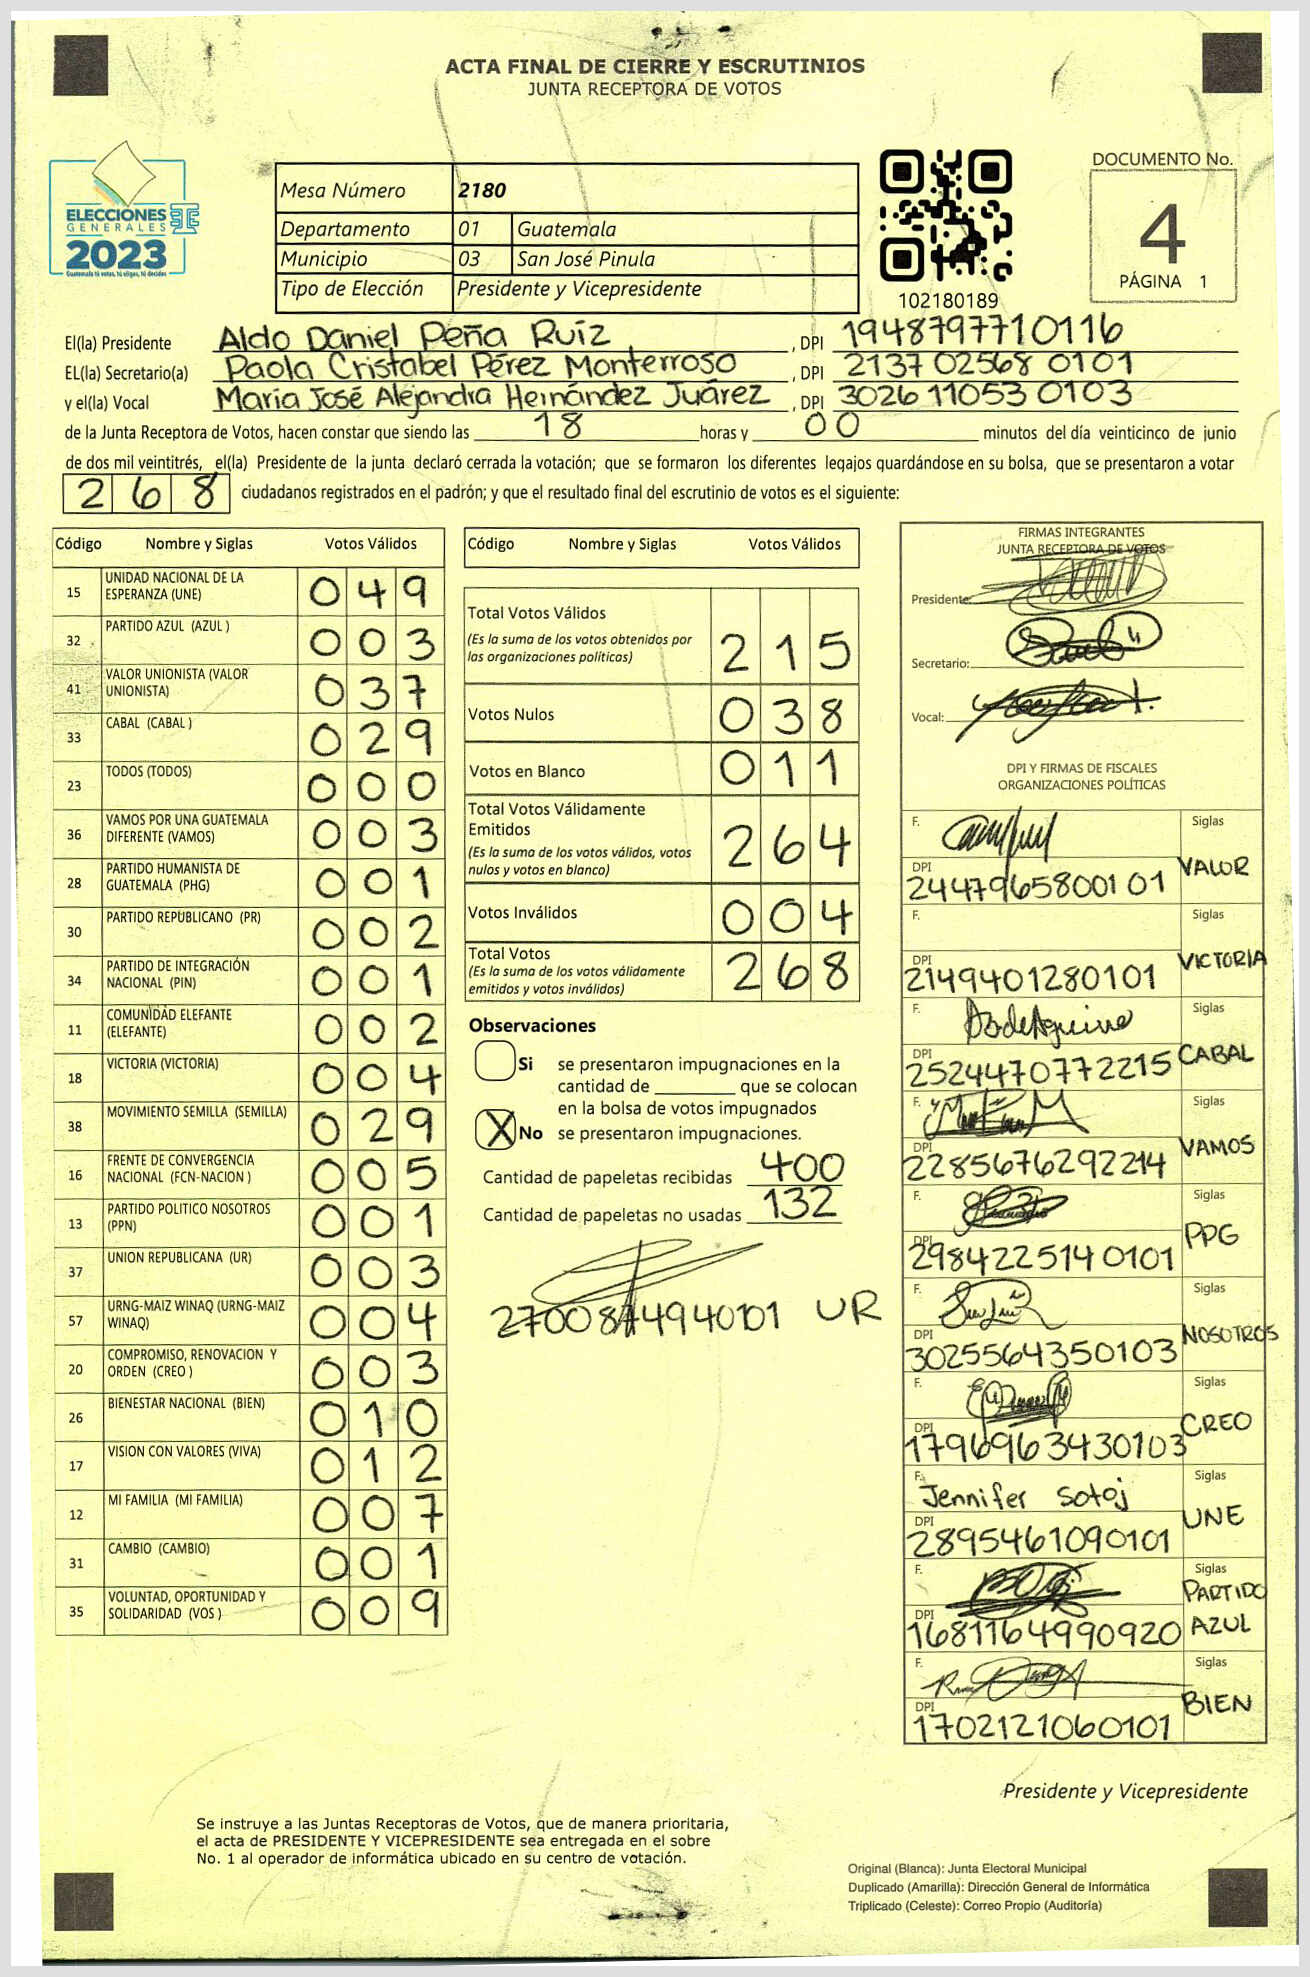 ACTA FINAL DE CIERRE Y ESCRUTINIOS
JUNTA RECEPTORA DE VOTOS
ELECCIONES
GENERALES
2023
Guatemala tú votas, tú eliges, tú decides
Mesa Número 2180
Departamento 01 Guatemala
Municipio 03 San José Pinula
Tipo de Elección Presidente y Vicepresidente
102180189
DOCUMENTO No.
4
PÁGINA 1
El(la) Presidente Aldo Daniel Peña Ruíz , DPI 1948797710116
EL(la) Secretario(a) Paola Cristabel Pérez Monterroso , DPI 2137025680101
y el(la) Vocal María José Alejandra Hernández Juárez , DPI 3026110530103
de la Junta Receptora de Votos, hacen constar que siendo las 18 horas y 00 minutos del día veinticinco de junio
de dos mil veintitrés, el(la) Presidente de la junta declaró cerrada la votación; que se formaron los diferentes legajos guardándose en su bolsa, que se presentaron a votar
268 ciudadanos registrados en el padrón; y que el resultado final del escrutinio de votos es el siguiente:
Código Nombre y Siglas Votos Válidos
15 UNIDAD NACIONAL DE LA ESPERANZA (UNE) 049
32 PARTIDO AZUL (AZUL ) 003
41 VALOR UNIONISTA (VALOR UNIONISTA) 037
33 CABAL (CABAL ) 029
23 TODOS (TODOS) 000
36 VAMOS POR UNA GUATEMALA DIFERENTE (VAMOS) 003
28 PARTIDO HUMANISTA DE GUATEMALA (PHG) 001
30 PARTIDO REPUBLICANO (PR) 002
34 PARTIDO DE INTEGRACIÓN NACIONAL (PIN) 001
11 COMUNIDAD ELEFANTE (ELEFANTE) 002
18 VICTORIA (VICTORIA) 004
38 MOVIMIENTO SEMILLA (SEMILLA) 029
16 FRENTE DE CONVERGENCIA NACIONAL (FCN-NACION ) 005
13 PARTIDO POLITICO NOSOTROS (PPN) 001
37 UNION REPUBLICANA (UR) 003
57 URNG-MAIZ WINAQ (URNG-MAIZ WINAQ) 004
20 COMPROMISO, RENOVACION Y ORDEN (CREO ) 003
26 BIENESTAR NACIONAL (BIEN) 010
17 VISION CON VALORES (VIVA) 012
12 MI FAMILIA (MI FAMILIA) 007
31 CAMBIO (CAMBIO) 001
35 VOLUNTAD, OPORTUNIDAD Y SOLIDARIDAD (VOS ) 009
Código Nombre y Siglas Votos Válidos
Total Votos Válidos
(Es la suma de los votos obtenidos por
las organizaciones políticas) 215
Votos Nulos 038
Votos en Blanco 011
Total Votos Válidamente
Emitidos
(Es la suma de los votos válidos, votos
nulos y votos en blanco) 264
Votos Inválidos 004
Total Votos
(Es la suma de los votos válidamente
emitidos y votos inválidos) 268
Observaciones
Si se presentaron impugnaciones en la
cantidad de ________ que se colocan
en la bolsa de votos impugnados
X No se presentaron impugnaciones.
Cantidad de papeletas recibidas 400
Cantidad de papeletas no usadas 132
2700874940101 UR
FIRMAS INTEGRANTES
JUNTA RECEPTORA DE VOTOS
Presidente:
Secretario:
Vocal:
DPI Y FIRMAS DE FISCALES
ORGANIZACIONES POLÍTICAS
F. Siglas
DPI 2447965800101 VALOR
F. Siglas
DPI 2149401280101 VICTORIA
F. Siglas
DPI 2524470772215 CABAL
F. Siglas
DPI 2285676292214 VAMOS
F. Siglas
DPI 2984225140101 PPG
F. Siglas
DPI 3025564350103 NOSOTROS
F. Siglas
DPI 1796963430103 CREO
F. Jennifer Sotoj Siglas
DPI 2895461090101 UNE
F. Siglas
DPI 1681164990920 PARTIDO AZUL
F. Siglas
DPI 1702121060101 BIEN
Presidente y Vicepresidente
Se instruye a las Juntas Receptoras de Votos, que de manera prioritaria,
el acta de PRESIDENTE Y VICEPRESIDENTE sea entregada en el sobre
No. 1 al operador de informática ubicado en su centro de votación.
Original (Blanca): Junta Electoral Municipal
Duplicado (Amarilla): Dirección General de Informática
Triplicado (Celeste): Correo Propio (Auditoría)